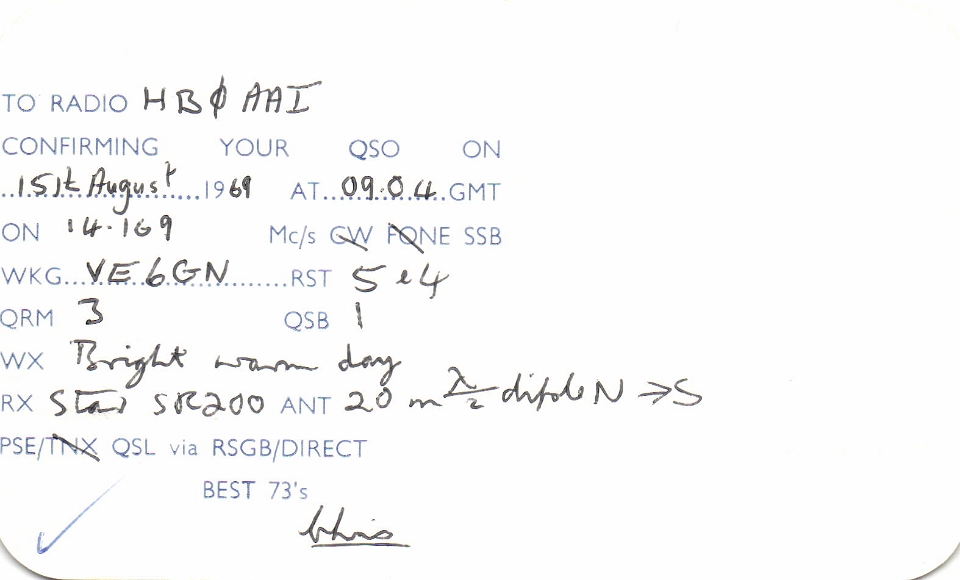 TO RADIO HBØAAI
CONFIRMING YOUR QSO ON
..15th August...........1969 AT...09.04..GMT
ON 14.169 Mc/s CW FONE SSB
WKG...VE6GN..............RST 5 e 4
QRM 3 QSB 1
WX Bright warm day
RX Star SR200 ANT 20 m λ/2 dipole N → S
PSE/TNX QSL via RSGB/DIRECT
BEST 73's
Chris